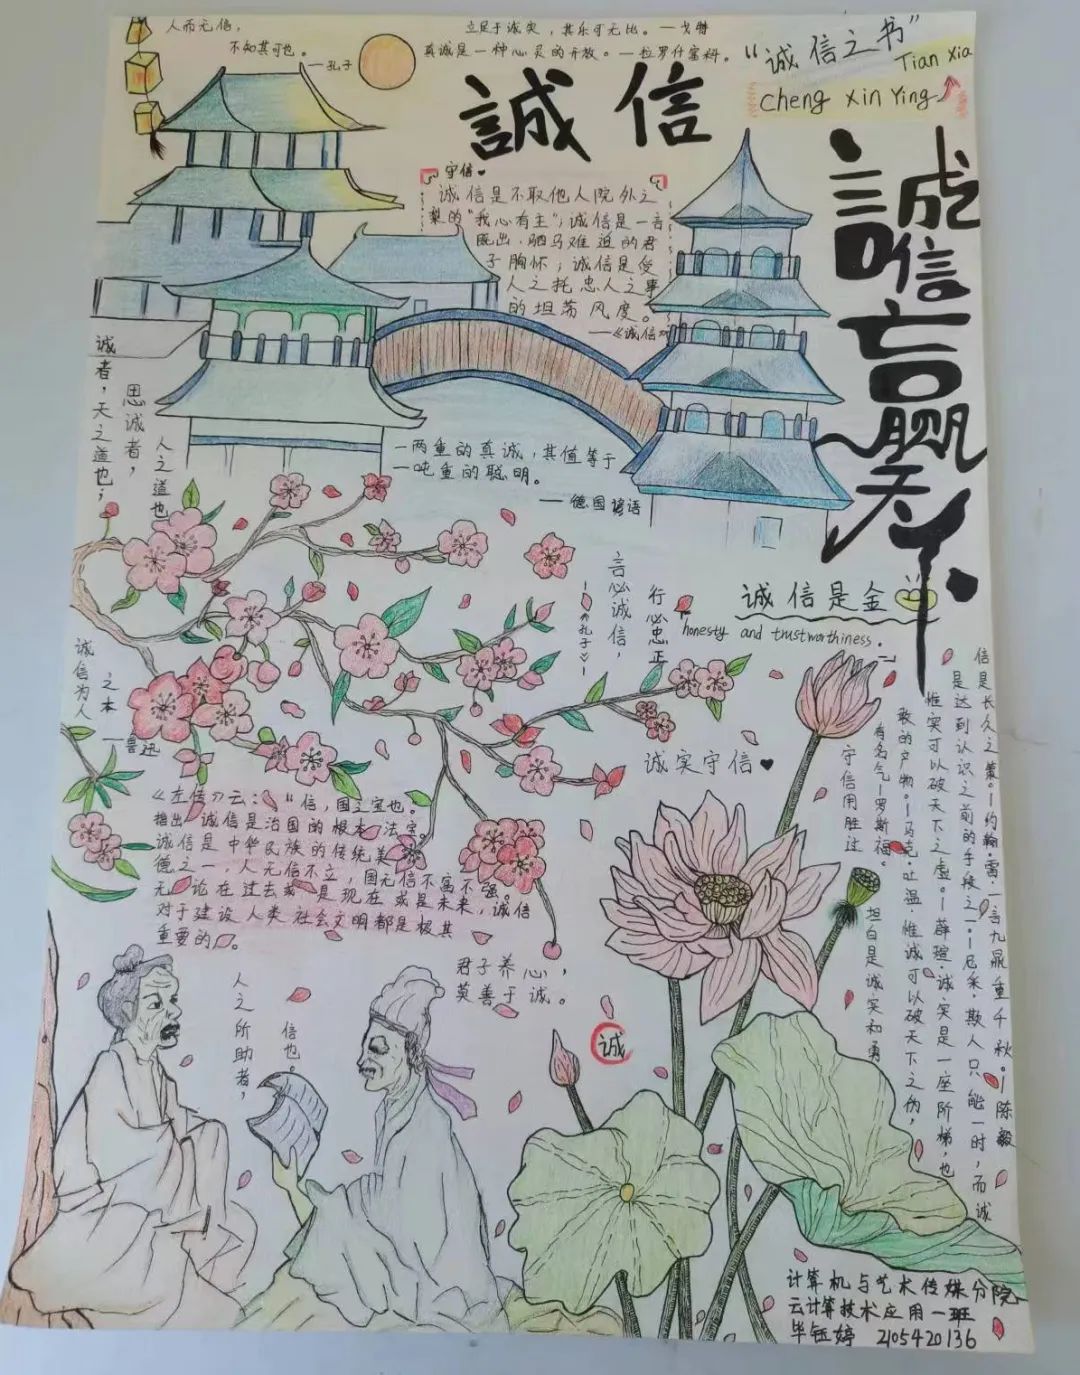 人而无信，
不知其可也。
—孔子
立足于诚实，其乐可无比。—戈特
真诚是一种心灵的开放。—拉罗什富科。
“诚信之书”
Tian Xia
cheng xin Ying
誠信
誠信言赢天下
守信♥
诚信是不取他人院外之
梨的“我心有主”；诚信是一言
既出，驷马难追的君
子胸怀；诚信是受
人之托忠人之事
的坦荡风度。
—《诚信》
诚者，天之道也；
思诚者，
人之道也
一两重的真诚，其值等于
一吨重的聪明。
—德国谚语
言必诚信，
行必忠正
—孔子—
诚信是金
honesty and trustworthiness.
诚信为人
之本
—鲁迅
诚实守信♥
《左传》云：“信，国之宝也”
指出，诚信是治国的根本法宝。
诚信是中华民族的传统美
德之一，人无信不立，国无信不富不强。
无论在过去或是现在或是未来，诚信
对于建设人类社会文明都是极其
重要的。
君子养心，
莫善于诚。
人之所助者，
信也。
诚
信是长久之策。—约翰·雷·一言九鼎重千秋。—陈毅
是达到认识之前的手段之一。—尼采·欺人只能一时，而诚
惟实可以破天下之虚。—薛瑄·诚实是一座阶梯，也
敢的产物。—马克·吐温·惟诚可以破天下之伪，
有名气—罗斯福。
坦白是诚实和勇
守信用胜过
计算机与艺术传媒分院
云计算技术应用一班
毕钰婷 2105420136